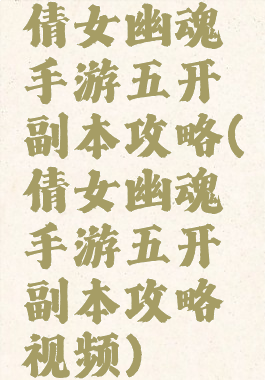 倩女幽魂
手游五开
副本攻略(
倩女幽魂
手游五开
副本攻略
视频)